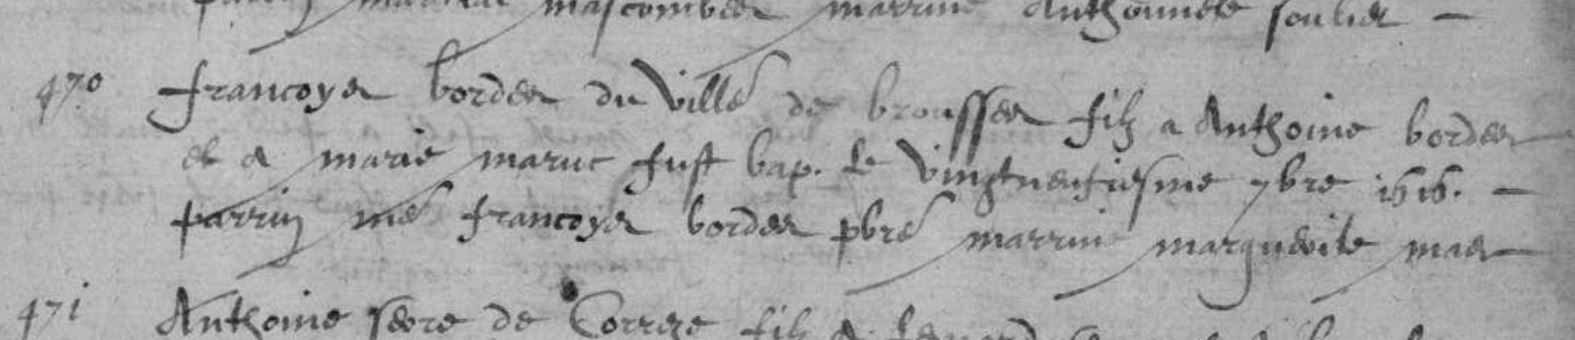 parrin mascombes marrine Anthoinete soulier -
470 francoys bordes du villé de brousses filz a Anthoine bordes
et a marie maruc fust bap. le vingtneufiesme 7bre 1616. -
parrin mé francoys bordes pbre marrine marguerite mas
471 Anthoine seore de Correze filz a